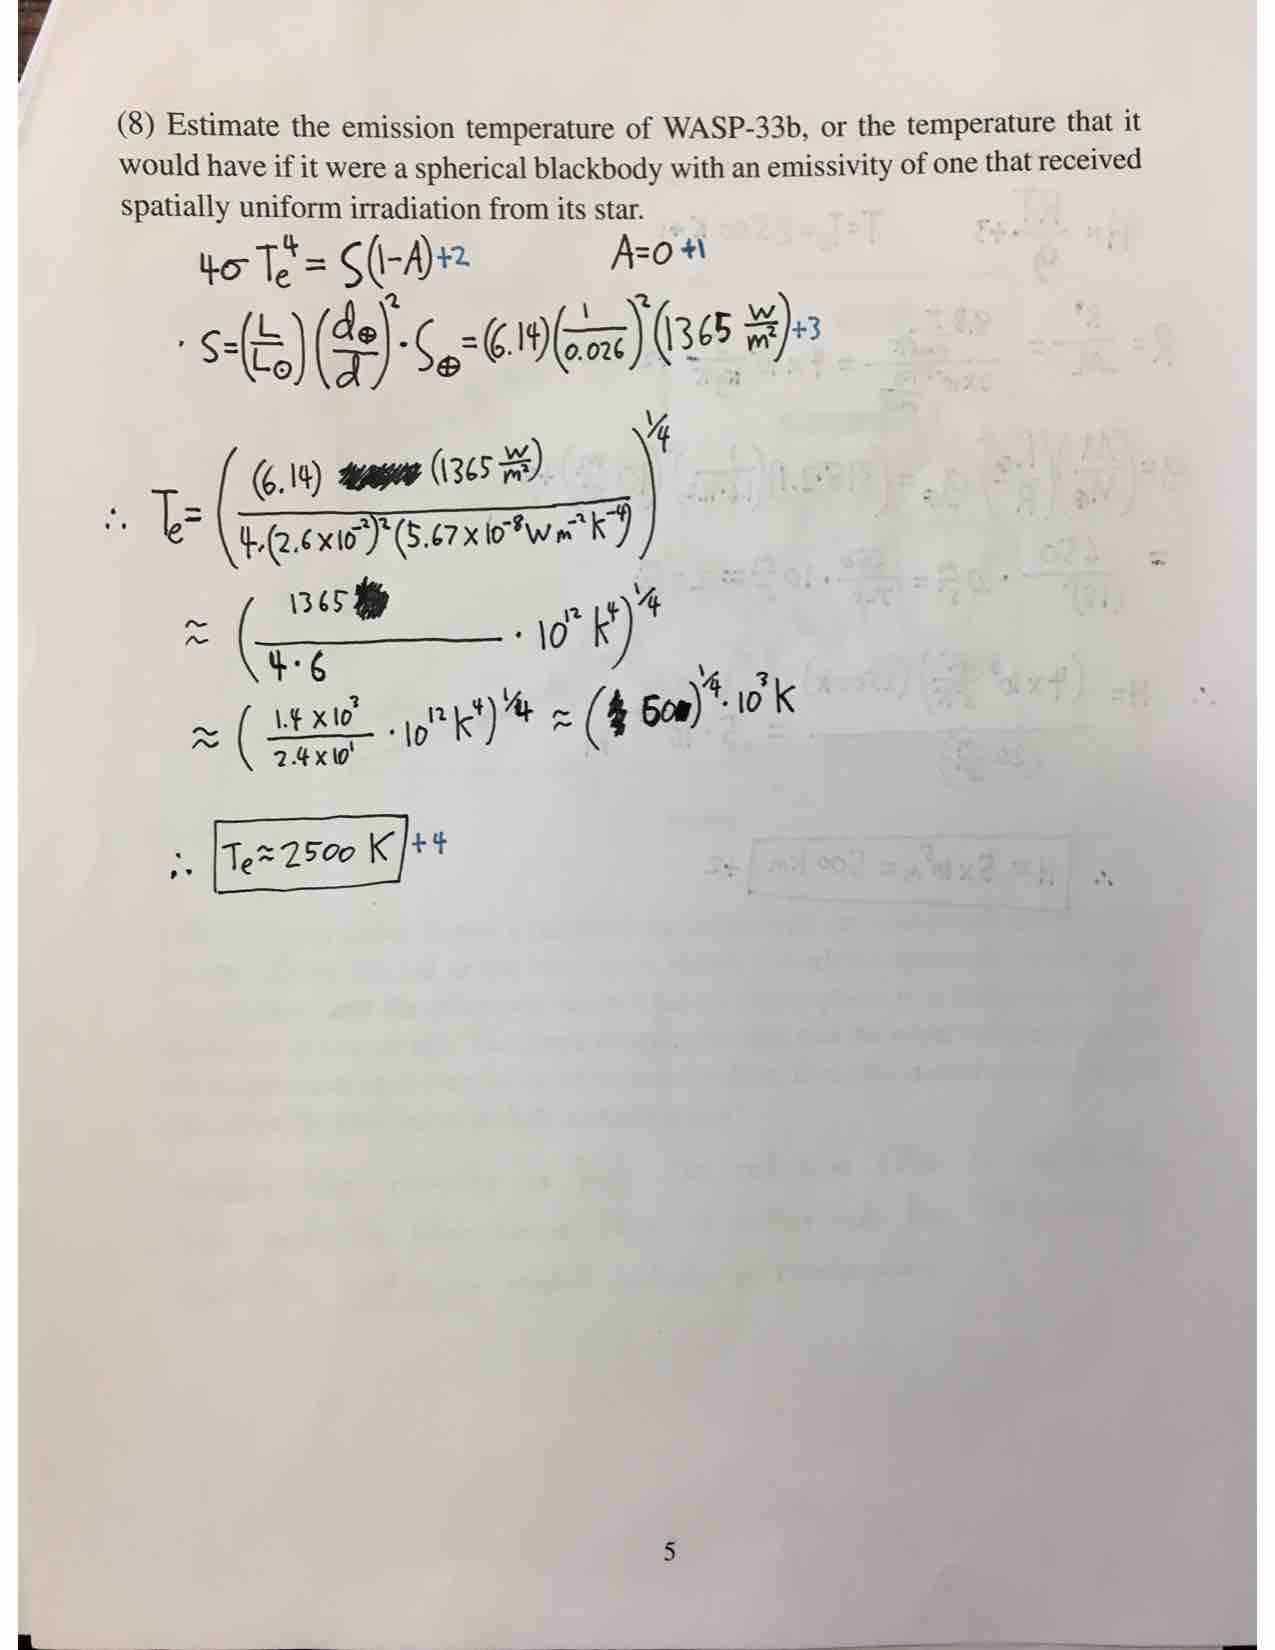 (8) Estimate the emission temperature of WASP-33b, or the temperature that it
would have if it were a spherical blackbody with an emissivity of one that received
spatially uniform irradiation from its star.
4σ Te⁴ = S(1-A) +2 A=0 +1
· S=(L/L⊙)(d⊕/d)²·S⊕=(6.14)(1/0.026)²(1365 W/m²) +3
∴ Te=((6.14) (1365 W/m²)/4·(2.6×10⁻²)²(5.67×10⁻⁸Wm⁻²K⁻⁴))^1/4
≈ (1365/4·6 · 10¹² K⁴)^1/4
≈ (1.4×10³/2.4×10¹ · 10¹² K⁴)^1/4 ≈ (50)^1/4 · 10³ K
∴ Te≈2500 K +4
5